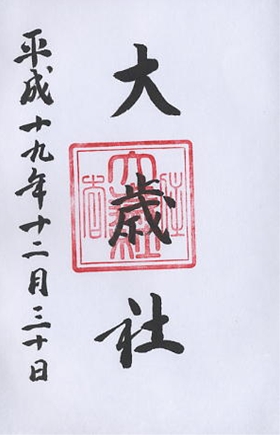 大歳社
平成十九年十二月三十日